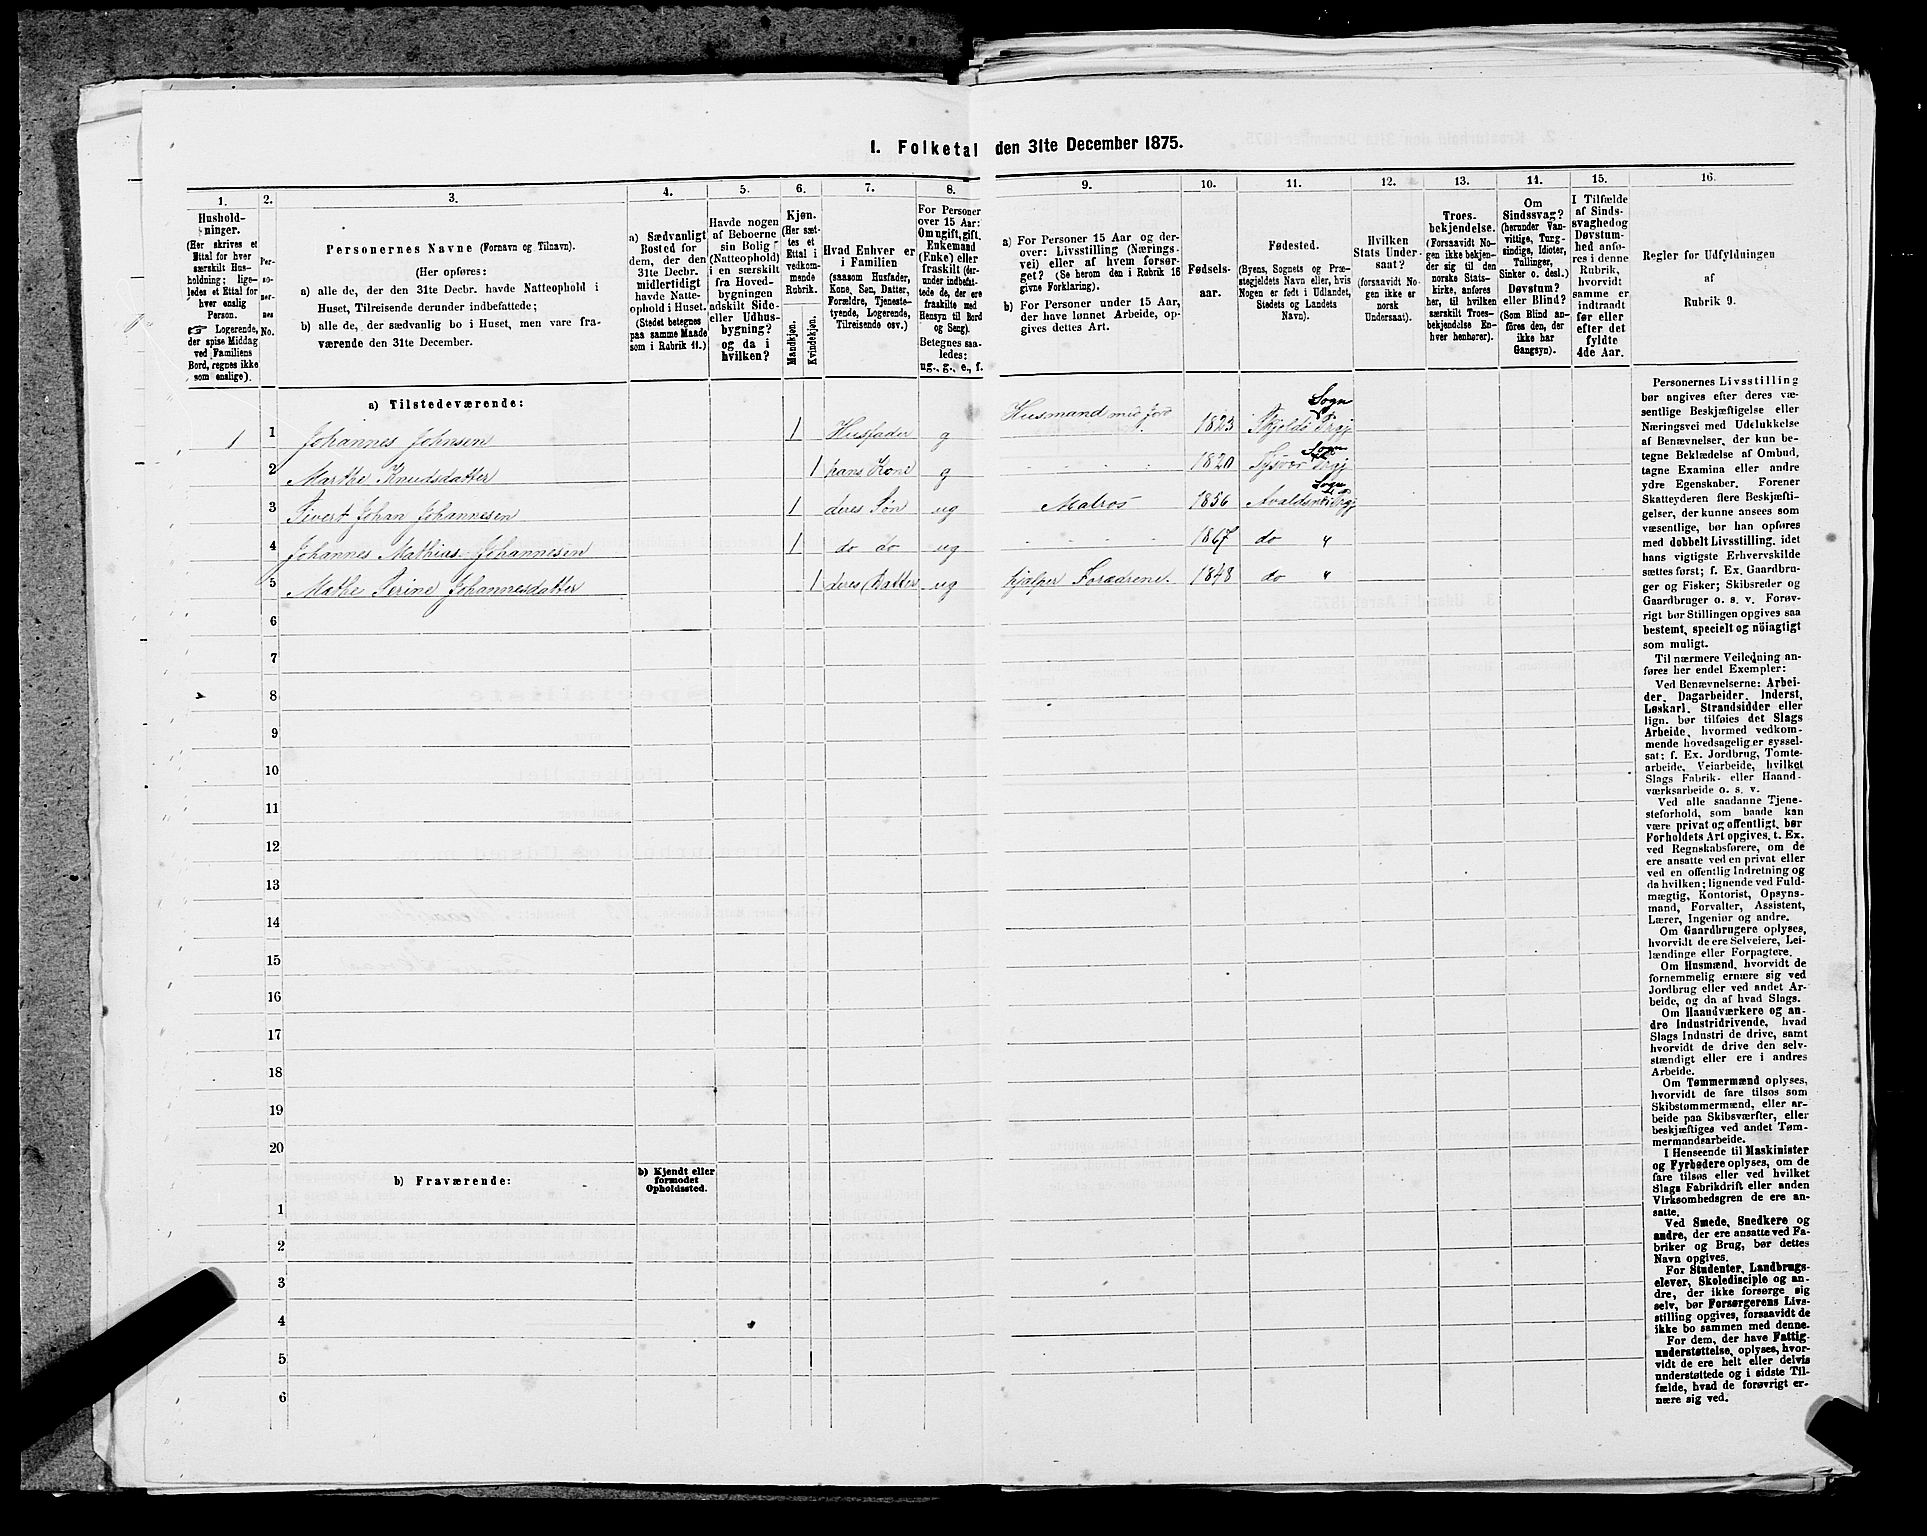 I. Folketal den 31te December 1875.
1. 2. 3. 4. 5. 6. 7. 8. 9. 10. 11. 12. 13. 14. 15. 16.
Hushold-
ninger.
(Her skrives et
Ettal for hver
særskilt Hus-
holdning; lige-
ledes et Ettal for
hver enslig
Person.
☞ Logerende,
der spise Middag
ved Familiens
Bord, regnes ikke
som enslige).
Per-
so-
ner-
nes
No.
Personernes Navne (Fornavn og Tilnavn).
(Her opføres:
a) alle de, der den 31te Decbr. havde Natteophold i
Huset, Tilreisende derunder indbefattede;
b) alle de, der sædvanlig bo i Huset, men vare fra-
værende den 31te December.
a) Sædvanligt
Bosted for
dem, der den
31te Decbr.
midlertidigt
havde Natte-
ophold i Huset.
(Stedet betegnes
paa samme Maade
som i Rubrik 11.)
Havde nogen
af Beboerne
sin Bolig
(Natteophold)
i en særskilt
fra Hoved-
bygningen
adskilt Side-
eller Udhus-
bygning?
og da i
hvilken?
Kjøn.
(Her sæt-
tes et
Ettal i
vedkom-
mende
Rubrik.
Mandkjøn.
Kvindekjøn.
Hvad Enhver er
i Familien
(saasom Husfader,
Kone, Søn, Datter,
Forældre, Tjeneste-
tyende, Logerende,
Tilreisende osv.)
For Personer
over 15 Aar:
Om ugift, gift,
Enkemand
(Enke) eller
fraskilt (der-
under indbefat-
tede de, der ere
fraskilte med
Hensyn til Bord
og Seng).
Betegnes saa-
ledes:
ug., g., e., f.
a) For Personer 15 Aar og der-
over: Livsstilling (Nærings-
vei) eller af hvem forsør-
get? (Se herom den i Rubrik 16
givne Forklaring).
b) For Personer under 15 Aar,
der have lønnet Arbeide, op-
gives dettes Art.
Fødsels-
aar.
Fødested.
(Byens, Sognets og Præ-
stegjeldets Navn eller, hvis
Nogen er født i Udlandet,
Stedets og Landets
Navn).
Hvilken
Stats Under-
saat?
(forsaavidt No-
gen ikke er
norsk
Undersaat).
Troes-
bekjendelse.
(Forsaavidt No-
gen ikke bekjen-
der sig til den
norske Stats-
kirke, anføres
her, til hvilken
særskilt Troes-
bekjendelse En-
hver henhører).
Om
Sindssvag?
(herunder Van-
vittige, Tung-
sindige, Idioter,
Tullinger,
Sinker o. desl.)
Døvstum?
eller Blind?
(Som Blind an-
føres den, der
ikke har
Gangsyn).
I Tilfælde
af Sinds-
svaghed og
Døvstum-
hed anfø-
res i denne
Rubrik,
hvorvidt
samme er
indtraadt
før eller
efter det
fyldte
4de Aar.
Regler for Udfyldningen
af
Rubrik 9.
a) Tilstedeværende:
1 1 Johannes Johnsen 1 Husfader g Husmand med jord 1823 Skjolds Sogn Prgj
2 Marthe Knudsdatter 1 hans Kone g 1820 Tysver Sogn Prgj
3 Sivert Johan Johannesen 1 deres Søn ug Matros 1856 Avaldsnes Sogn Prgj
4 Johannes Mathias Johannesen 1 do do ug 1867 do "
5 Mathe Serine Johannesdatter 1 deres Datter ug hjælper Forældrene. 1848 do "
6
7
8
9
10
11
12
13
14
15
16
17
18
19
20
b) Fraværende:
b) Kjendt eller
formodet
Opholdssted.
1
2
3
4
5
6
Personernes Livsstilling
bør angives efter deres væ-
sentlige Beskjæftigelse eller
Næringsvei med Udelukkelse
af Benævnelser, der kun be-
tegne Beklædelse af Ombud,
tagne Examina eller andre
ydre Egenskaber. Forener
Skatteyderen flere Beskjæfti-
gelser, der kunne ansees som
væsentlige, bør han opføres
med dobbelt Livsstilling, idet
hans vigtigste Erhvervskilde
sættes først; f. Ex. Gaardbru-
ger og Fisker; Skibsreder og
Gaardbruger o. s. v. Forøv-
rigt bør Stillingen opgives saa
bestemt, specielt og nöiagtigt
som muligt.
Til nærmere Veiledning an-
føres her endel Exempler:
Ved Benævnelserne: Arbei-
der, Dagarbeider, Inderst,
Løskarl, Strandsidder eller
lign. bør tilføies det Slags
Arbeide, hvormed vedkom-
mende hovedsagelig er syssel-
sat; f. Ex. Jordbrug, Tomte-
arbeide, Veiarbeide, hvilket
Slags Fabrik- eller Haand-
værksarbeide o. s. v.
Ved alle saadanne Tjene-
steforhold, som baade kan
være privat og offentligt, bør
Forholdets Art opgives, t. Ex.
ved Regnskabsførere, om de
ere ansatte ved en privat eller
ved en offentlig Indretning og
da hvilken; lignende ved Fuld-
mægtig, Kontorist, Opsyns-
mand, Forvalter, Assistent,
Lærer, Ingeniør og andre.
Om Gaardbrugere oplyses,
hvorvidt de ere Selveiere, Lei-
lændinge eller Forpagtere.
Om Husmænd, hvorvidt de
fornemmelig ernære sig ved
Jordbrug eller ved andet Ar-
beide, og da af hvad Slags.
Om Haandværkere og an-
dre Industridrivende, hvad
Slags Industri de drive, samt
hvorvidt de drive den selv-
stændigt eller ere i andres
Arbeide.
Om Tømmermænd oplyses,
hvorvidt de fare tilsøs som
Skibstømmermænd, eller ar-
beide paa Skibsværfter, eller
beskjæftiges ved andet Tøm-
mermandsarbeide.
I Henseende til Maskinister
og Fyrbødere oplyses, om de
fare tilsøs eller ved hvilket
Slags Fabrikdrift eller anden
Virksomhedsgren de ere an-
satte.
Ved Smede, Snedkere og
andre, der ere ansatte ved Fa-
briker og Brug, bør dettes
Navn opgives.
For Studenter, Landbrugs-
elever, Skoledisciple og an-
dre, der ikke forsørge sig
selv, bør Forsørgerens Livs-
stilling opgives, forsaavidt de
ikke bo sammen med denne.
For dem, der have Fattig-
understøttelse, oplyses, hvor-
vidt de ere helt eller delvis
understøttede og i sidste Til-
fælde, hvad de forøvrigt er-
nære sig ved.